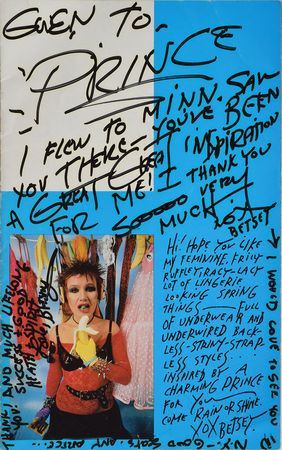 GIVEN TO
PRINCE
I FLEW TO MINN. SAW
YOU THERE - YOU'VE BEEN
A GREAT GREAT INSPIRATION
FOR ME! I THANK YOU
SOOOOO VERY
MUCH!
XOX
BETSEY
HI! HOPE YOU LIKE
MY FEMININE, FRILLY
RUFFLEY, RACY-LACY
LOT OF LINGERIE
LOOKING SPRING
THINGS — FULL
OF UNDERWEAR AND
UNDERWIRED BACK-
LESS-STRINY-STRAP-
LESS STYLES...
INSPIRED BY A
CHARMING PRINCE
FOR YOU
COME RAIN OR SHINE.
XOX BETSEY
→ I WOULD LOVE TO SEE YOU
IN N.Y. - GOOD SEATS: ANY
THANX AND MUCH LIFE,
SUCCESS
YOU.
BETSEY